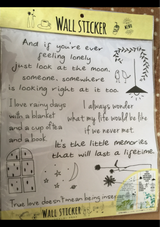 WALL STICKER
And if you're ever
feeling lonely
Just look at the moon.
someone, somewhere
is looking right at it too.
I love rainy days
with a blanket
and a cup of tea
and a book.
I always wonder
what my life would be like
if we never met.
It's the little memories
that will last a lifetime.
True love doesn't mean being inse
WALL STICKER